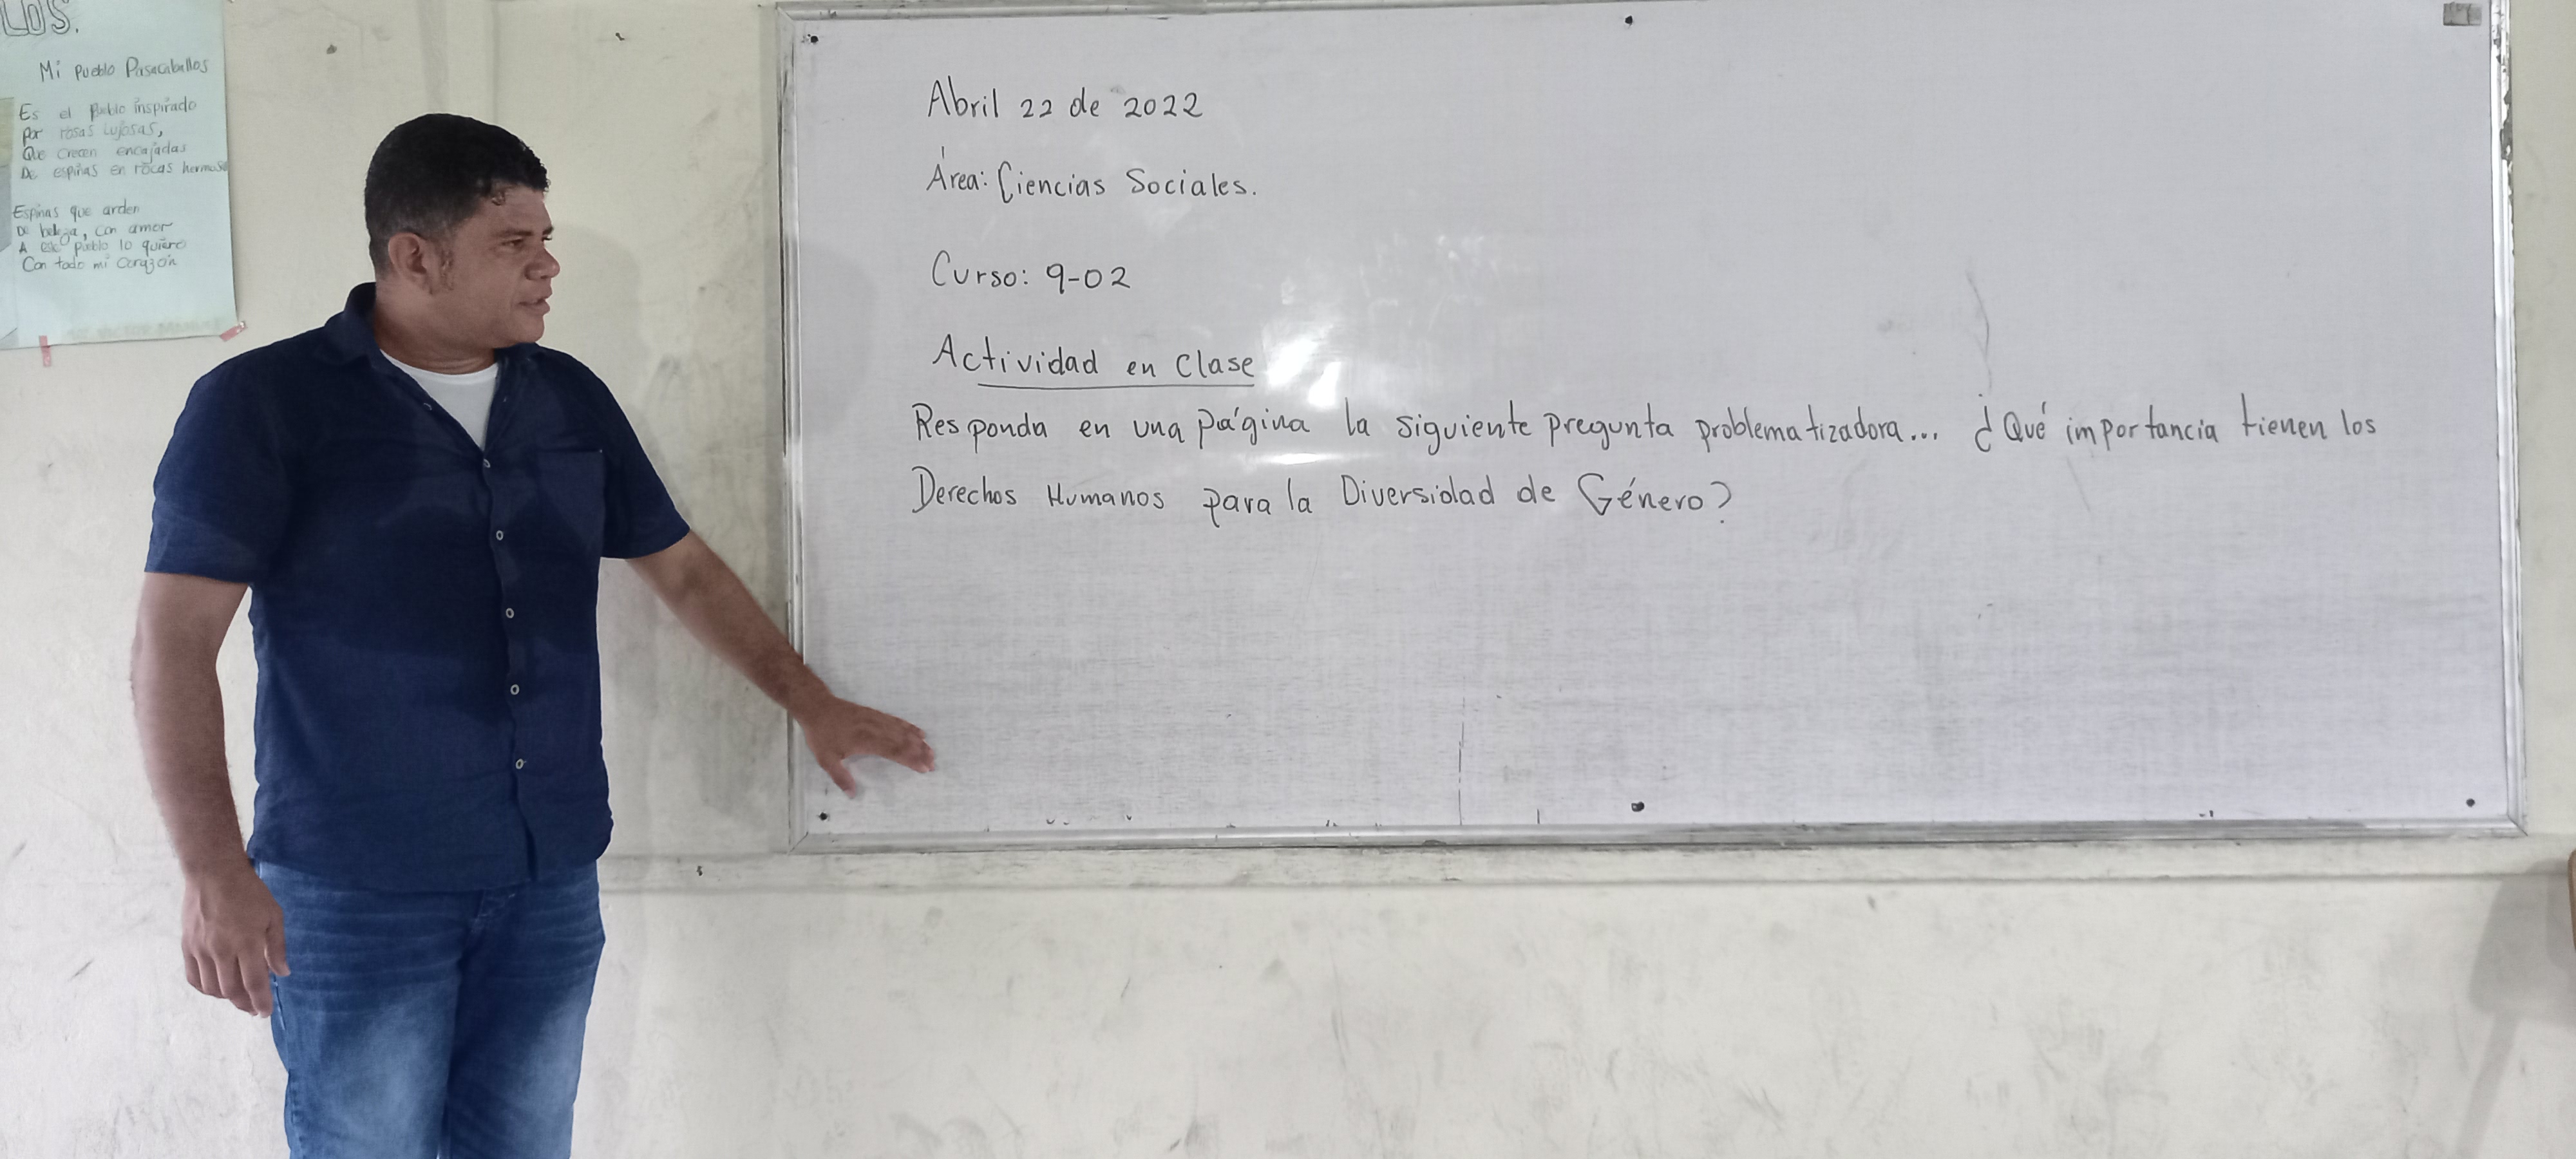 LOS.
Mi pueblo Pasacaballos
Es el Pueblo inspirado
por rosas lujosas,
Que crecen encajadas
De espinas en rocas hermosa
Espinas que arden
De belleza, con amor
A ese pueblo lo quiero
Con todo mi Corazón
Abril 22 de 2022
Área: Ciencias Sociales.
Curso: 9-02
Actividad en Clase
Responda en una página la siguiente pregunta problematizadora... ¿Qué importancia tienen los
Derechos Humanos para la Diversidad de Género?